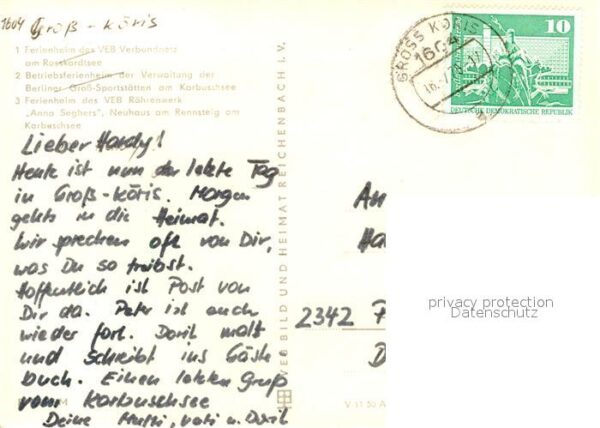 1604 Groß-Köris
1 Ferienheim des VEB Verbundnetz
am Rosskardtsee
2 Betriebsferienheim der Verwaltung der
Berliner Groß-Sportstätten am Karbuschsee
3 Ferienheim des VEB Röhrenwerk
"Anna Seghers", Neuhaus am Rennsteig am
Karbuschsee
Lieber Hardy!
Heute ist nun der letzte Tag
in Groß-Köris. Morgen
gehts in die Heimat.
Wir sprechen oft von Dir,
was Du so treibst.
Hoffentlich ist Post von
Dir da. Peter ist auch
wieder fort. Doril malt
und schreibt ins Gäste
buch. Einen letzten Gruß
vom Karbuschsee
Deine Mutti, Vati u. Doril
VEB BILD UND HEIMAT REICHENBACH I. V.
V 11 50 A
GROSS KÖRIS
1604
10
DEUTSCHE DEMOKRATISCHE REPUBLIK
An
Ha
2342
privacy protection
Datenschutz